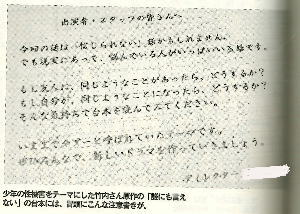 出演者・スタッフの皆さんへ
今回の話は「信じられない」話かもしれません。
でも現実にあって、悩んでいる人がいっぱいいる話です。
もし友人に、同じようなことがあったら、どうするか？
もし自分が、同じようなことになったら、どうするか？
そんな気持ちで台本を読んでみてください。
いままでタブーと呼ばれていたテーマです。
ぜひみんなで、新しいドラマを作っていきましょう。
ディレクター
少年の性被害をテーマにした竹内さん原作の「誰にも言え
ない」の台本には、冒頭にこんな注意書きが。